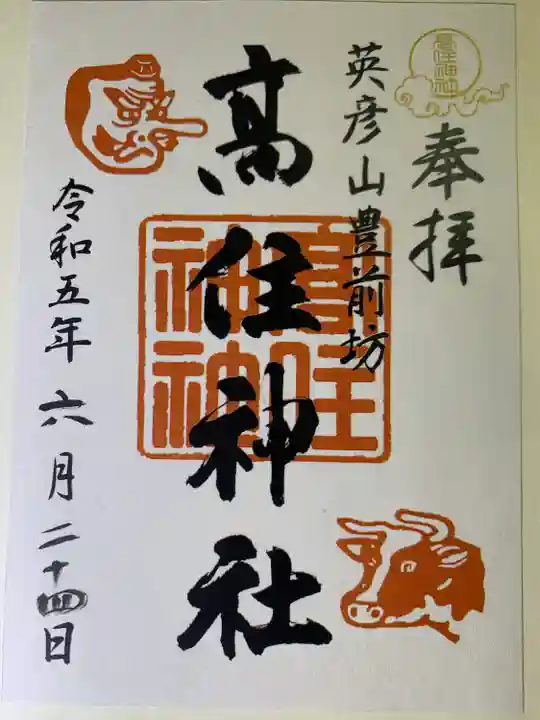 奉拝
英彦山豊前坊
高住神社
令和五年六月二十四日
高住神神
高住神神